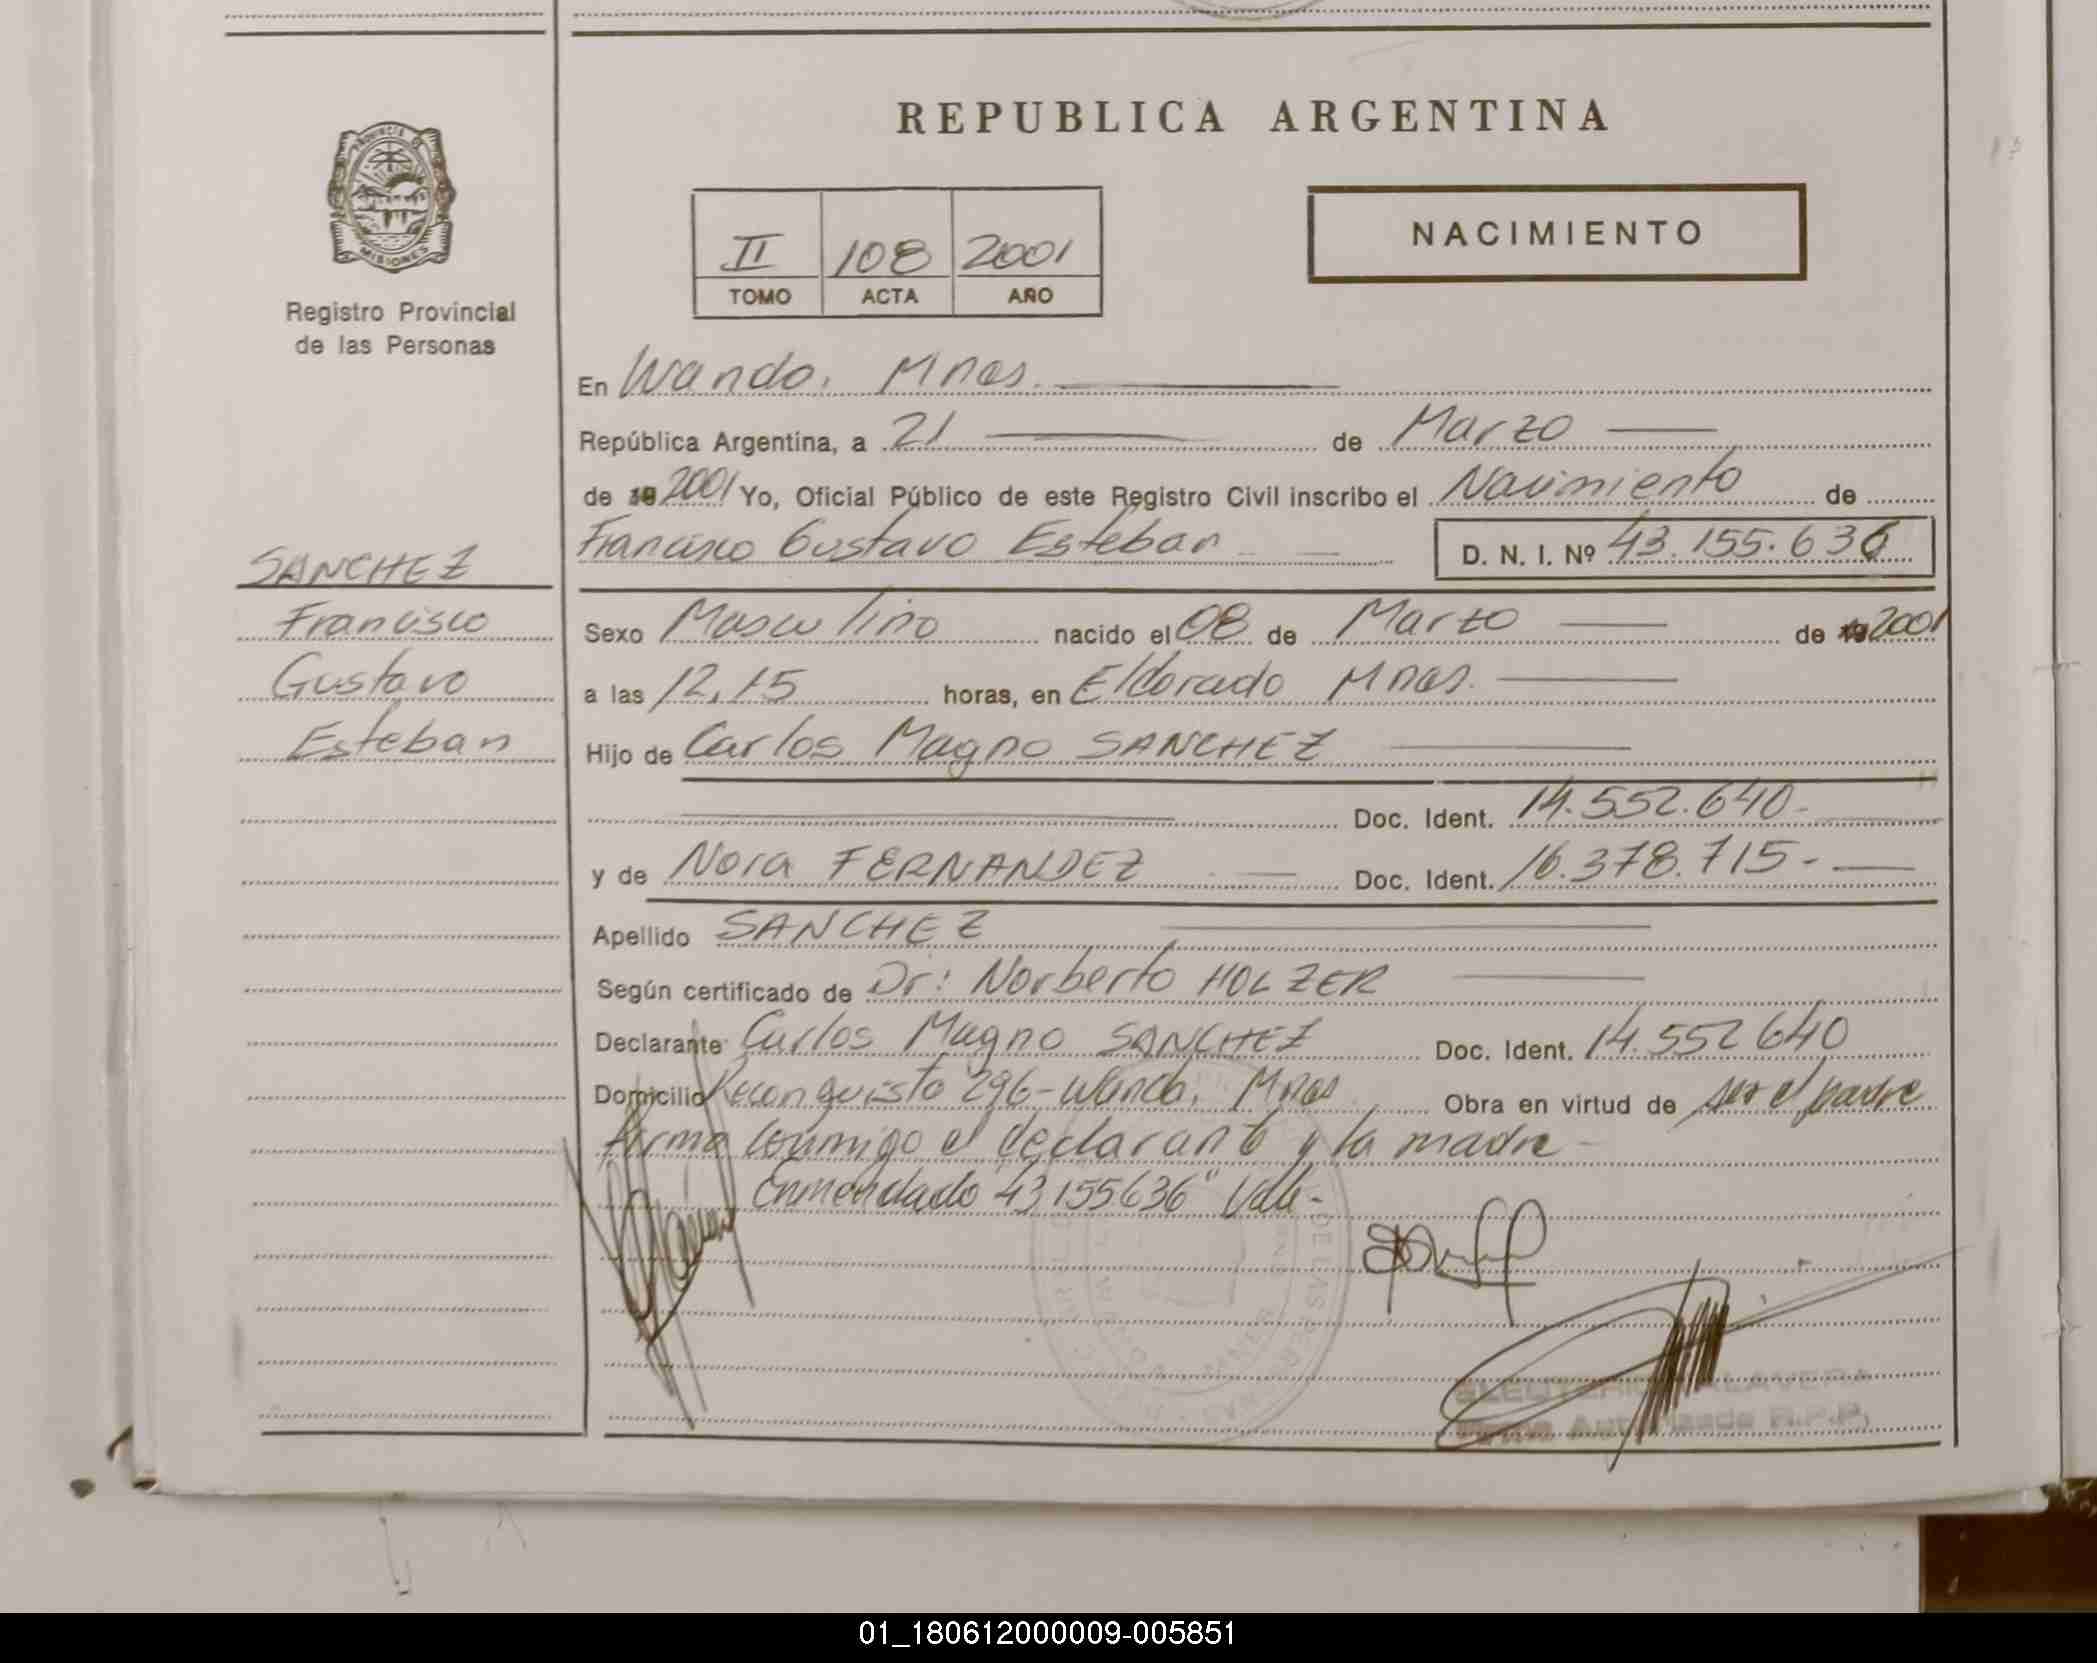 REPUBLICA ARGENTINA
PROVINCIA DE
MISIONES
Registro Provincial
de las Personas
II 108 2001
TOMO ACTA AÑO
NACIMIENTO
En Wanda. Mnes.
República Argentina, a 21 de Marzo
de 19 2001 Yo, Oficial Público de este Registro Civil inscribo el Nacimiento de
Francisco Gustavo Esteban D. N. I. Nº 43.155.636
SANCHEZ
Francisco
Gustavo
Esteban
Sexo Masculino nacido el 08 de Marzo de 19 2001
a las 12,15 horas, en Eldorado Mnes.
Hijo de Carlos Magno SANCHEZ
Doc. Ident. 14.552.640-
y de Nora FERNANDEZ Doc. Ident. 16.378.715-
Apellido SANCHEZ
Según certificado de Dr: Norberto HOLZER
Declarante Carlos Magno SANCHEZ Doc. Ident. 14.552 640
Domicilio Reconquista 296-Wanda. Mnes Obra en virtud de ser el padre
firma conmigo el declarante y la madre-
Enmendado "43155636" Vale.-
ELEUTERIO TALAVERA
Firma Autorizada R.P.P.
01_180612000009-005851